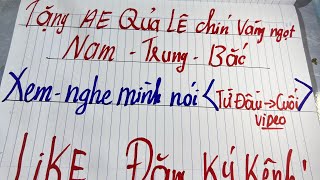 Tặng AE Quả Lê chín vàng ngọt
Nam - Trung - Bắc
Xem - nghe mình nói < Từ Đầu → Cuối >
video
LiKE Đăng Ký Kênh